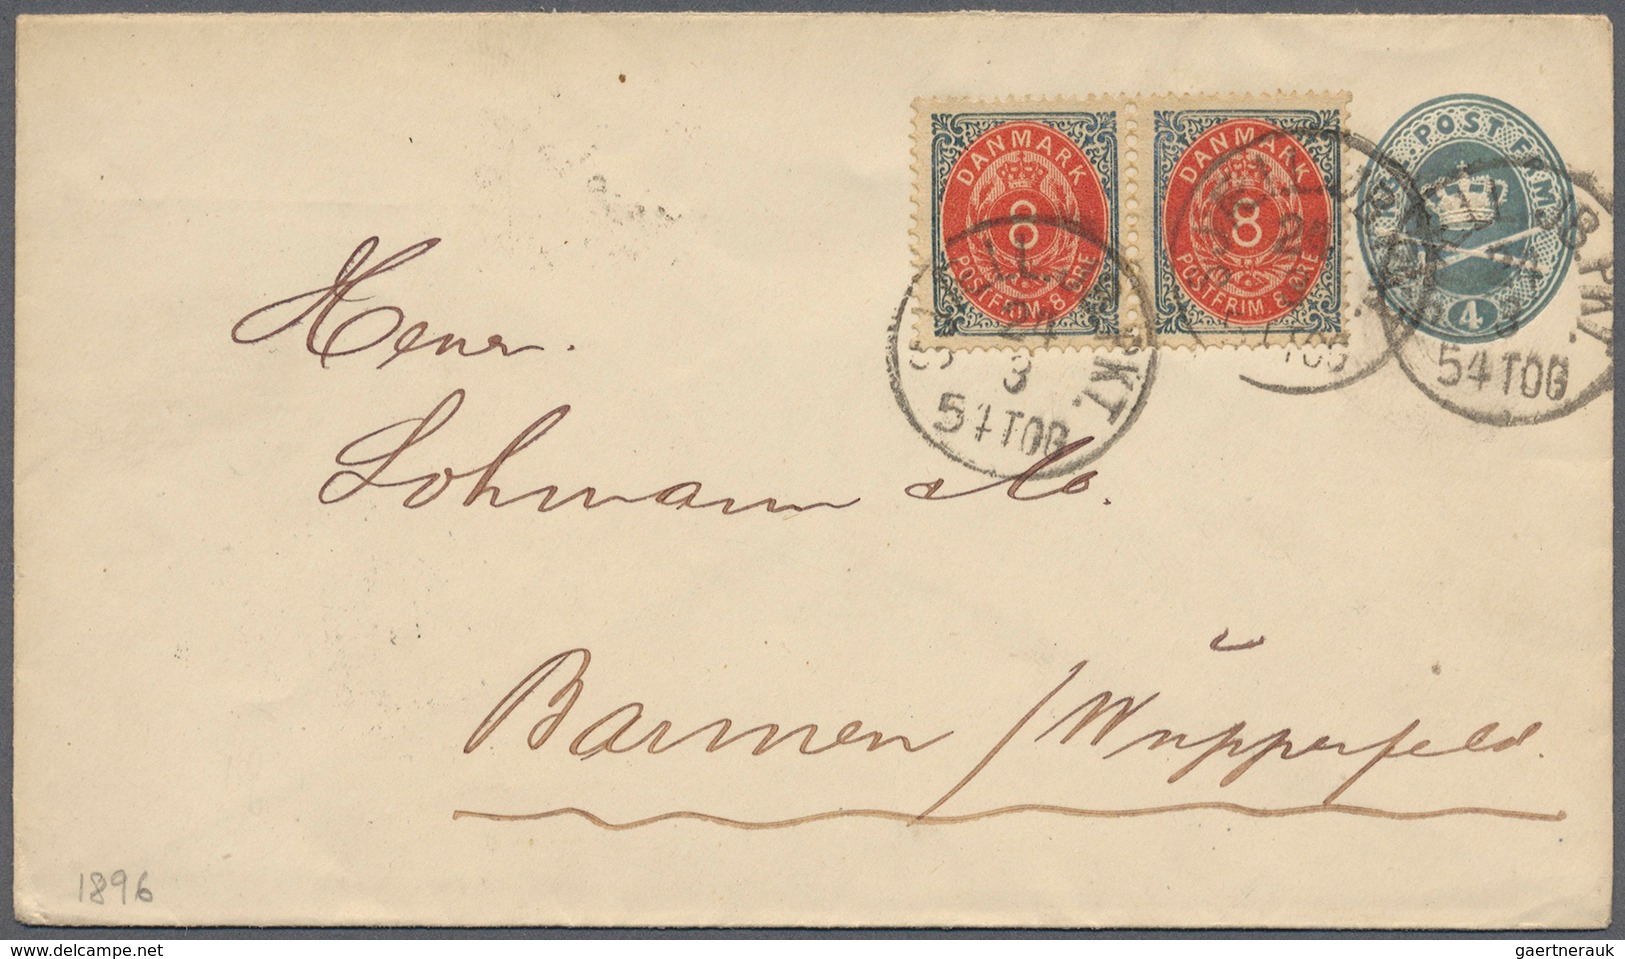 DANMARK
8
POSTFRIM. 8 ØRE
DANMARK
8
POSTFRIM. 8 ØRE
POSTFRIM
4
PKT.
3
54 TOG
JB. PKT.
54 TOG
Herrer.
Lohmann & Co.
Barmen / Wupperfeld.
1896
www.delcampe.net
gaertnerauk